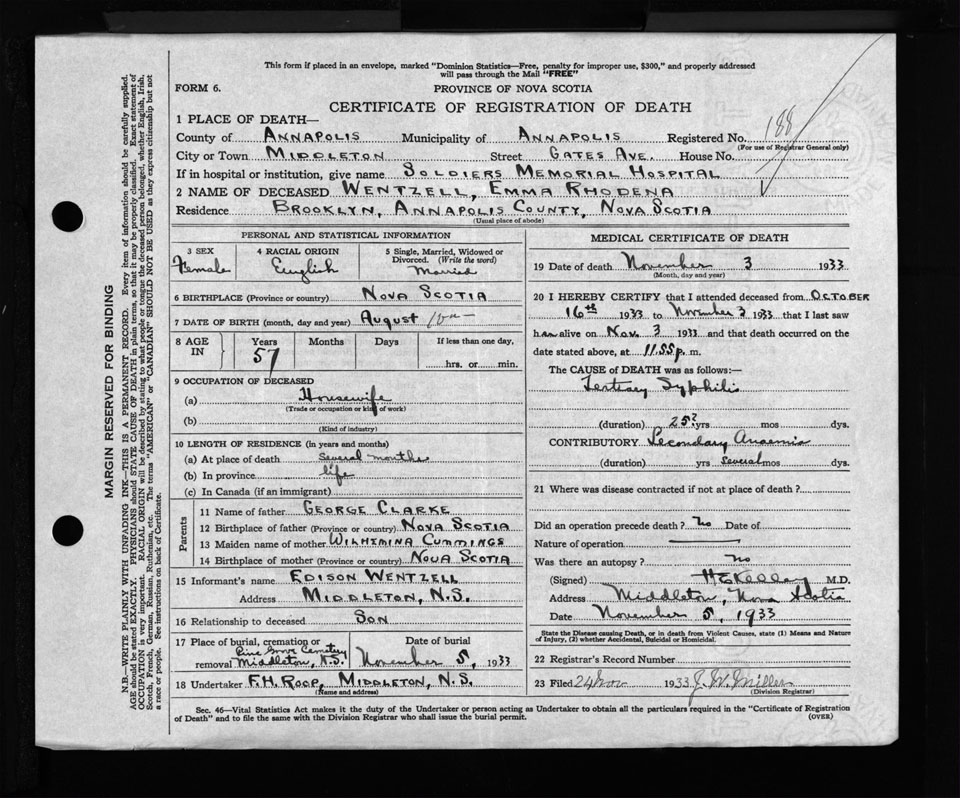 This form if placed in an envelope, marked "Dominion Statistics—Free, penalty for improper use, $300," and properly addressed
will pass through the Mail "FREE"
FORM 6.
PROVINCE OF NOVA SCOTIA
CERTIFICATE OF REGISTRATION OF DEATH
1 PLACE OF DEATH—
County of ANNAPOLIS Municipality of ANNAPOLIS Registered No. 188
(For use of Registrar General only)
City or Town MIDDLETON Street GATES AVE. House No.
If in hospital or institution, give name SOLDIERS MEMORIAL HOSPITAL
2 NAME OF DECEASED WENTZELL, EMMA RHODENA
Residence BROOKLYN, ANNAPOLIS COUNTY, NOVA SCOTIA
(Usual place of abode)
PERSONAL AND STATISTICAL INFORMATION
3 SEX Female
4 RACIAL ORIGIN English
5 Single, Married, Widowed or
Divorced. (Write the word)
Married
6 BIRTHPLACE (Province or country) NOVA SCOTIA
7 DATE OF BIRTH (month, day and year) August
8 AGE IN
Years Months Days If less than one day,
57 hrs. or min.
9 OCCUPATION OF DECEASED
(a) Housewife
(Trade or occupation or kind of work)
(b)
(Kind of industry)
10 LENGTH OF RESIDENCE (in years and months)
(a) At place of death several months
(b) In province life
(c) In Canada (if an immigrant)
Parents
11 Name of father GEORGE CLARKE
12 Birthplace of father (Province or country) NOVA SCOTIA
13 Maiden name of mother WILHIMINA CUMMINGS
14 Birthplace of mother (Province or country) NOVA SCOTIA
15 Informant's name EDISON WENTZELL
Address MIDDLETON, N.S.
16 Relationship to deceased SON
17 Place of burial, cremation or
removal Pine Grove Cemetery
Middleton, N.S.
Date of burial
November 5, 1933
18 Undertaker F.H. ROOP, MIDDLETON, N.S.
(Name and address)
MEDICAL CERTIFICATE OF DEATH
19 Date of death November 3 1933
(Month, day and year)
20 I HEREBY CERTIFY that I attended deceased from OCTOBER
16th 1933 to November 3 1933 that I last saw
h er alive on Nov. 3 1933 and that death occurred on the
date stated above, at 11.55 p. m.
The CAUSE of DEATH was as follows:—
Tertiary Syphilis
(duration) 25? yrs mos dys.
CONTRIBUTORY Secondary Anaemia
(duration) yrs several mos dys.
21 Where was disease contracted if not at place of death?
Did an operation precede death? No Date of
Nature of operation
Was there an autopsy? no
(Signed) H E Kelley M.D.
Address Middleton, Nova Scotia
Date November 5, 1933
State the Disease causing Death, or in death from Violent Causes, state (1) Means and Nature
of Injury, (2) whether Accidental, Suicidal or Homicidal.
22 Registrar's Record Number
23 Filed 24 Nov 1933 J. W. Miller
(Division Registrar)
Sec. 46—Vital Statistics Act makes it the duty of the Undertaker or person acting as Undertaker to obtain all the particulars required in the "Certificate of Registration
of Death" and to file the same with the Division Registrar who shall issue the burial permit.
(OVER)
MARGIN RESERVED FOR BINDING
N.B.—WRITE PLAINLY WITH UNFADING INK—THIS IS A PERMANENT RECORD. Every item of information should be carefully supplied.
AGE should be stated EXACTLY. PHYSICIANS should STATE CAUSE OF DEATH in plain terms, so that it may be properly classified. Exact statement of
OCCUPATION is very important. RACIAL ORIGIN will be described by stating to what people or tongue the deceased person belonged, whether English, Irish,
Scotch, French, German, Russian, Ruthenian, etc. The terms "AMERICAN" or "CANADIAN" SHOULD NOT BE USED as they express citizenship but not
a race or people. See instructions on back of Certificate.